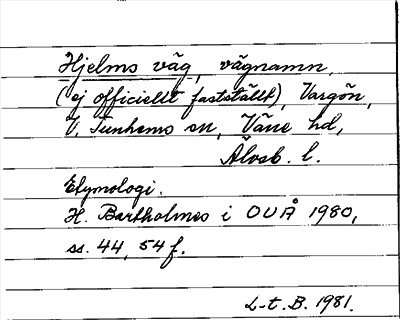 Hjelms väg, vägnamn,
(ej officiellt fastställt), Vargön,
V. Tunhems sn, Väne hd,
Älvsb. l.
Etymologi.
H. Bartholmes i OUÅ 1980,
ss. 44, 54 f.
L-t. B. 1981.